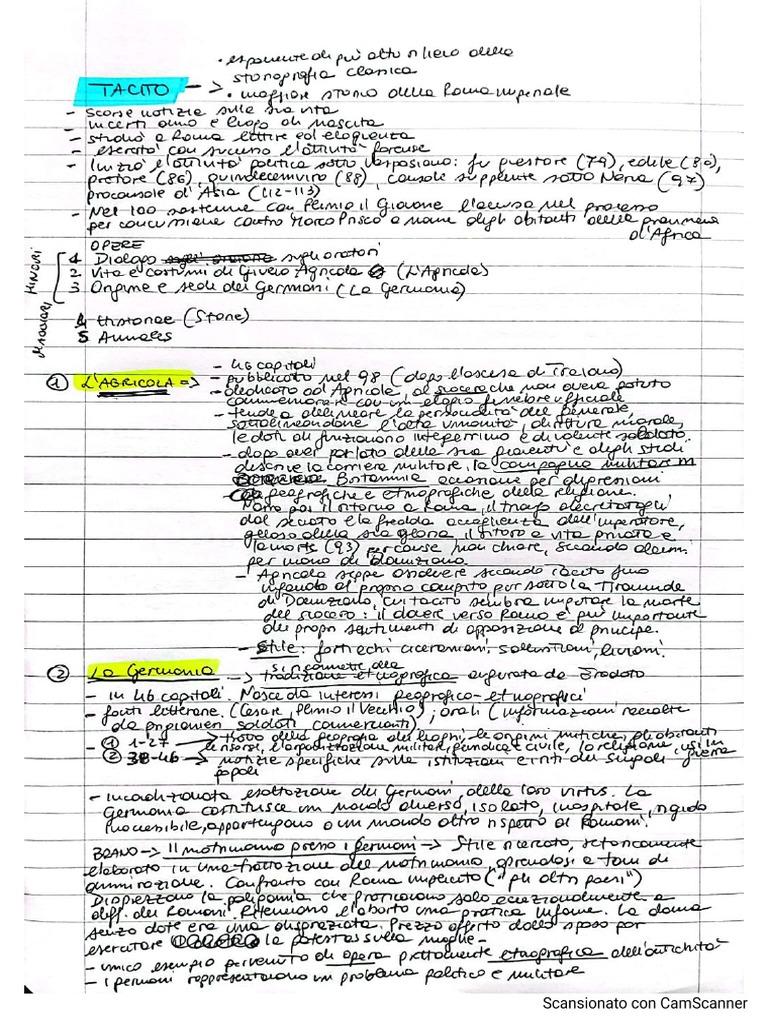 • esponente di più alto rilievo della
storiografia classica
TACITO → • maggiore storico della Roma imperiale
- scarse notizie sulla sua vita
- incerti anno e luogo di nascita
- studiò a Roma lettere ed eloquenza
- esercitò con successo l'attività forense
- Iniziò l'attività politica sotto Vespasiano: fu questore (79), edile (80),
pretore (86), quindecemviro (88), console supplente sotto Nerva (97)
proconsole d'Asia (112-113)
- Nel 100 sostenne con Plinio il Giovane l'accusa nel processo
per concussione contro Marco Prisco a nome degli abitanti della provincia
d'Africa
OPERE
MINORI
1 Dialogo sugli oratori
2 Vita e costumi di Giulio Agricola (L'Agricola)
3 Origine e sede dei Germani (La Germania)
MAGGIORI
4 Historiae (Storie)
5 Annales
① L'AGRICOLA => - 46 capitoli
- pubblicato nel 98 (dopo l'ascesa di Traiano)
- dedicato ad Agricola, al suocero che non aveva potuto
commemorare con un elogio funebre ufficiale
- tende a delineare la personalità del generale,
sottolineandone l'alta umanità, dirittura morale,
le doti di funzionario integerrimo e di valente soldato.
- dopo aver parlato della sua gioventù e degli studi
descrive la carriera militare, la campagna militare in
Britannia occasione per digressioni
geografiche e etnografiche della regione.
Narra poi il ritorno a Roma, il trionfo decretatogli
dal senato e la fredda accoglienza dell'imperatore,
geloso della sua gloria, il ritorno a vita privata e
la morte (93) per cause non chiare, secondo alcuni
per mano di Domiziano.
- Agricola seppe assolvere secondo Tacito fino
in fondo al proprio compito pur sotto la Tirannide
di Domiziano, cui Tacito sembra imputare la morte
del suocero: il dovere verso Roma è più importante
dei propri sentimenti di opposizione al principe.
- Stile: forti echi ciceroniani, sallustiani, liviani.
② La Germania → si riconnette alla
tradizione etnografica inaugurata da Erodoto
- in 46 capitoli. Nasce da interessi geografico-etnografici
- fonti letterarie (Cesare, Plinio il Vecchio), orali (informazioni raccolte
da prigionieri soldati commercianti)
- ① 1-27 → tratta della geografia dei luoghi, le origini mitiche, gli abitanti
le risorse, l'organizzazione militare, giuridica e civile, la religione, usi in guerra
② 38-46 → notizie specifiche sulle istituzioni e riti dei singoli
popoli
- incondizionata esaltazione dei Germani, della loro virtus. La
Germania costituisce un mondo diverso, isolato, inospitale, rigido
inaccessibile, appartengono a un mondo altro rispetto ai Romani.
BRANO → Il matrimonio presso i germani → Stile ricercato, retoricamente
elaborato in una trattazione del matrimonio, aprendosi a toni di
ammirazione. Confronto con Roma implicito ("gli altri paesi")
Disprezzano la poligamia che praticano solo eccezionalmente a
diff. dei Romani. Ritenevano l'aborto una pratica infame. La donna
senza dote era una disgraziata. Prezzo offerto dallo sposo per
esercitare la potestas sulla moglie -
- unico esempio pervenuto di opera prettamente etnografica dell'antichità
- i germani rappresentavano un problema politico e militare
Scansionato con CamScanner